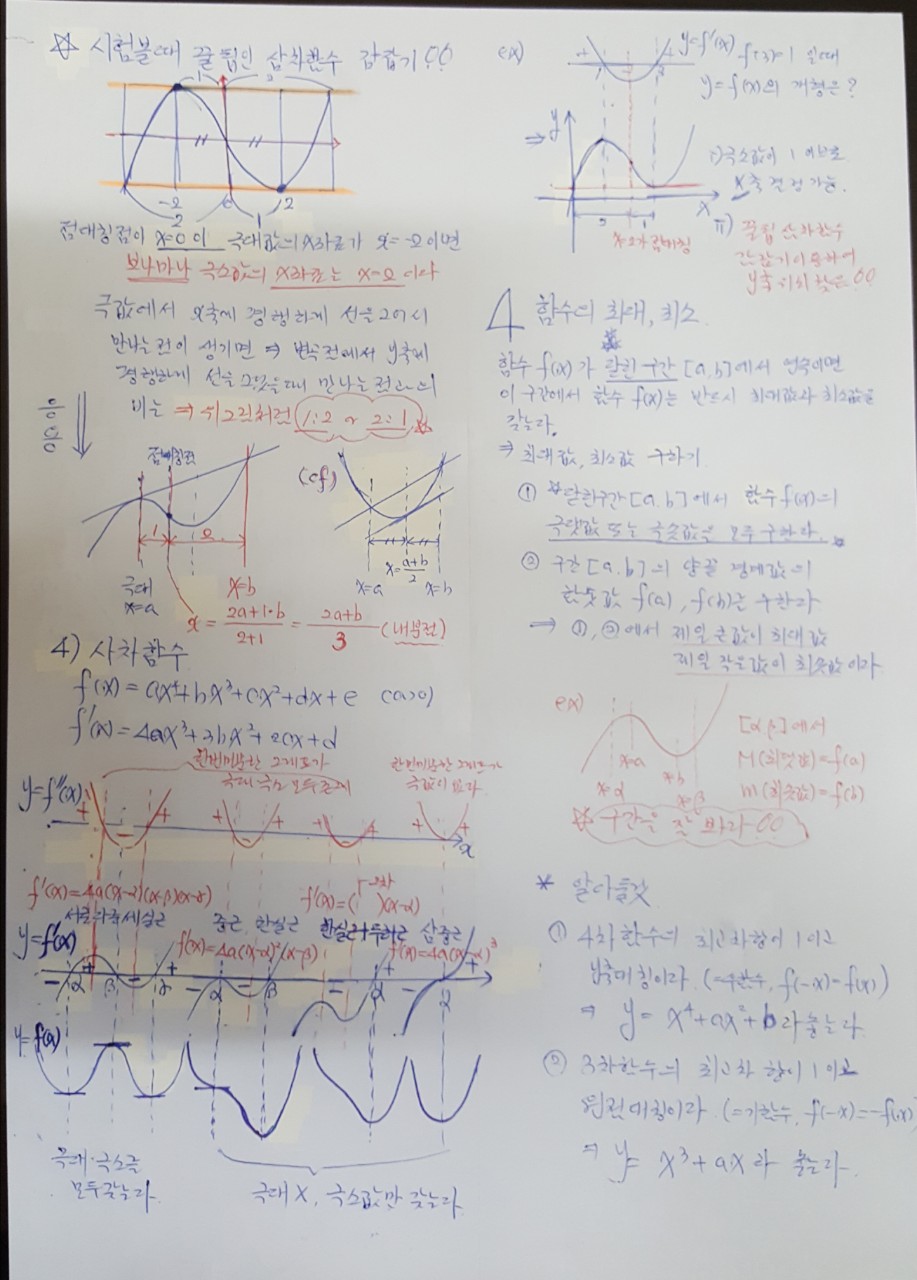 ☆ 시험볼때 꿀팁인 삼차함수 감잡기!!
1
2
-2
0
2
2
1
점대칭점이 x=0이 극대값의 x좌표가 x=-2이면
보나마나 극소값의 x좌표는 x=2이다
극값에서 x축에 평행하게 선을 그어서
만나는 점이 생기면 ⇒ 변곡점에서 y축에
평행하게 선을 그었을때 만나는 점과의
비는 ⇒ 위그림처럼 1:2 or 2:1
응용
점대칭점
1
2
극대
x=a
x=b
x = 2a+1·b / 2+1 = 2a+b / 3 (내분점)
(cf)
x=a
x=a+b/2
x=b
4) 사차함수
f(x)=ax⁴+bx³+cx²+dx+e (a>0)
f'(x)=4ax³+3bx²+2cx+d
한번미분한 그래프가
극대 극소 모두존재
한번미분한 그래프가
극값이 없다
y=f''(x)
+
-
+
+
-
+
+
-
+
+
+
x
f'(x)=4a(x-α)(x-β)(x-γ)
서로다른 세실근
중근, 한실근
f'(x)=4a(x-α)²(x-β)
f'(x)=( )(x-α)
한실근+두허근
삼중근
f'(x)=4a(x-α)³
y=f'(x)
- α + β - γ +
- α - β +
- α +
- α +
y=f(x)
극대·극소를
모두갖는다.
극대 X, 극소값만 갖는다.
ex)
+
-
+
1
3
y=f'(x)
f(3)=1 일때
y=f(x)의 개형은?
⇒
y
x
2
1
x=2가 점대칭
i) 극소값이 1 이므로
x축 결정 가능.
ii) 꿀팁 삼차함수
감잡기 이용하여
y축 위치 찾는!!
4 함수의 최대, 최소
함수 f(x)가 닫힌 구간 [a,b]에서 연속이면
이 구간에서 함수 f(x)는 반드시 최대값과 최소값을
갖는다.
⇒ 최대값, 최소값 구하기
① ☆닫힌구간 [a,b]에서 함수 f(x)의
극댓값 또는 극솟값을 모두 구한다.
② 구간 [a,b]의 양끝 경계값의
함숫값 f(a), f(b)를 구한다
⇒ ①, ②에서 제일 큰값이 최대값
제일 작은값이 최솟값이다
ex)
x=α
x=a
x=b
x=β
[α,β]에서
M(최댓값)=f(a)
m(최솟값)=f(b)
☆ 구간을 잘 봐라!!
* 알아둘것
① 4차함수의 최고차항이 1이고
y축대칭이라. (=우함수, f(-x)=f(x))
⇒ y=x⁴+ax²+b라 놓는다.
② 3차함수의 최고차 항이 1이고
원점대칭이라. (=기함수, f(-x)=-f(x))
⇒ y=x³+ax라 놓는다.